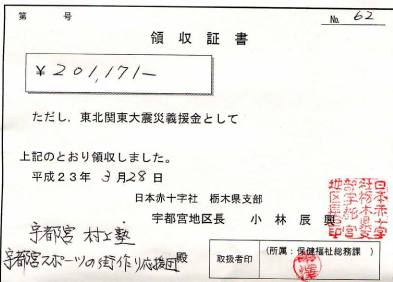 第 号 No. 62
領収証書
¥201,171-
ただし、東北関東大震災義援金として
上記のとおり領収しました。
平成23年 3月28日
日本赤十字社 栃木県支部
宇都宮地区長 小林辰興
宇都宮 村上塾
宇都宮スポーツの街作り応援団 殿
取扱者印
(所属:保健福祉総務課 )